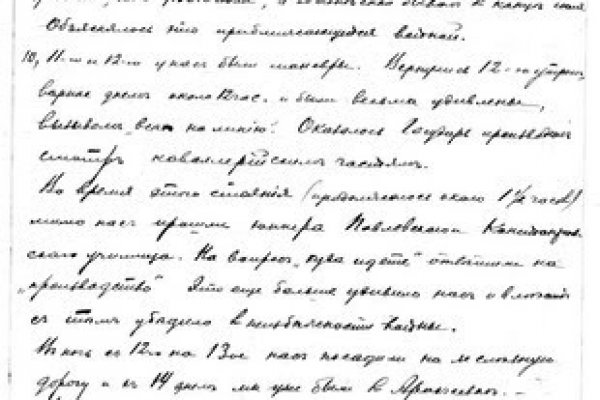 Объяснялось это приближающейся войной.
10, 11-го и 12-го у нас были маневры. Вернулись 12-го утром,
вернее днем около 12 час. и были весьма удивлены,
вызовом "всем на линию". Оказалось Государь производит
смотр кавалерийским частям.
Во время этого стояния (продолжалось около 1½ часов)
мимо нас прошли юнкера Павловского Константинов
ского училища. На вопрос "куда идете" отвечали на
"производство" Это еще больше удивило нас и
с тем убедило в неизбежности войны.
В ночь с 12-го на 13-ое нас посадили на железную
дорогу и с 14 днем мы уже были в